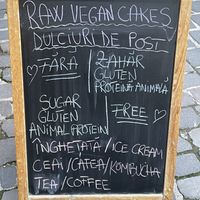 RAW VEGAN CAKES
DULCIURI DE POST
FĂRĂ
ZAHĂR
GLUTEN
PROTEINĂ ANIMALĂ
SUGAR
GLUTEN
ANIMAL PROTEIN
FREE
ÎNGHEȚATĂ/ICE CREAM
CEAI/CAFEA/KOMBUCHA
TEA/COFFEE